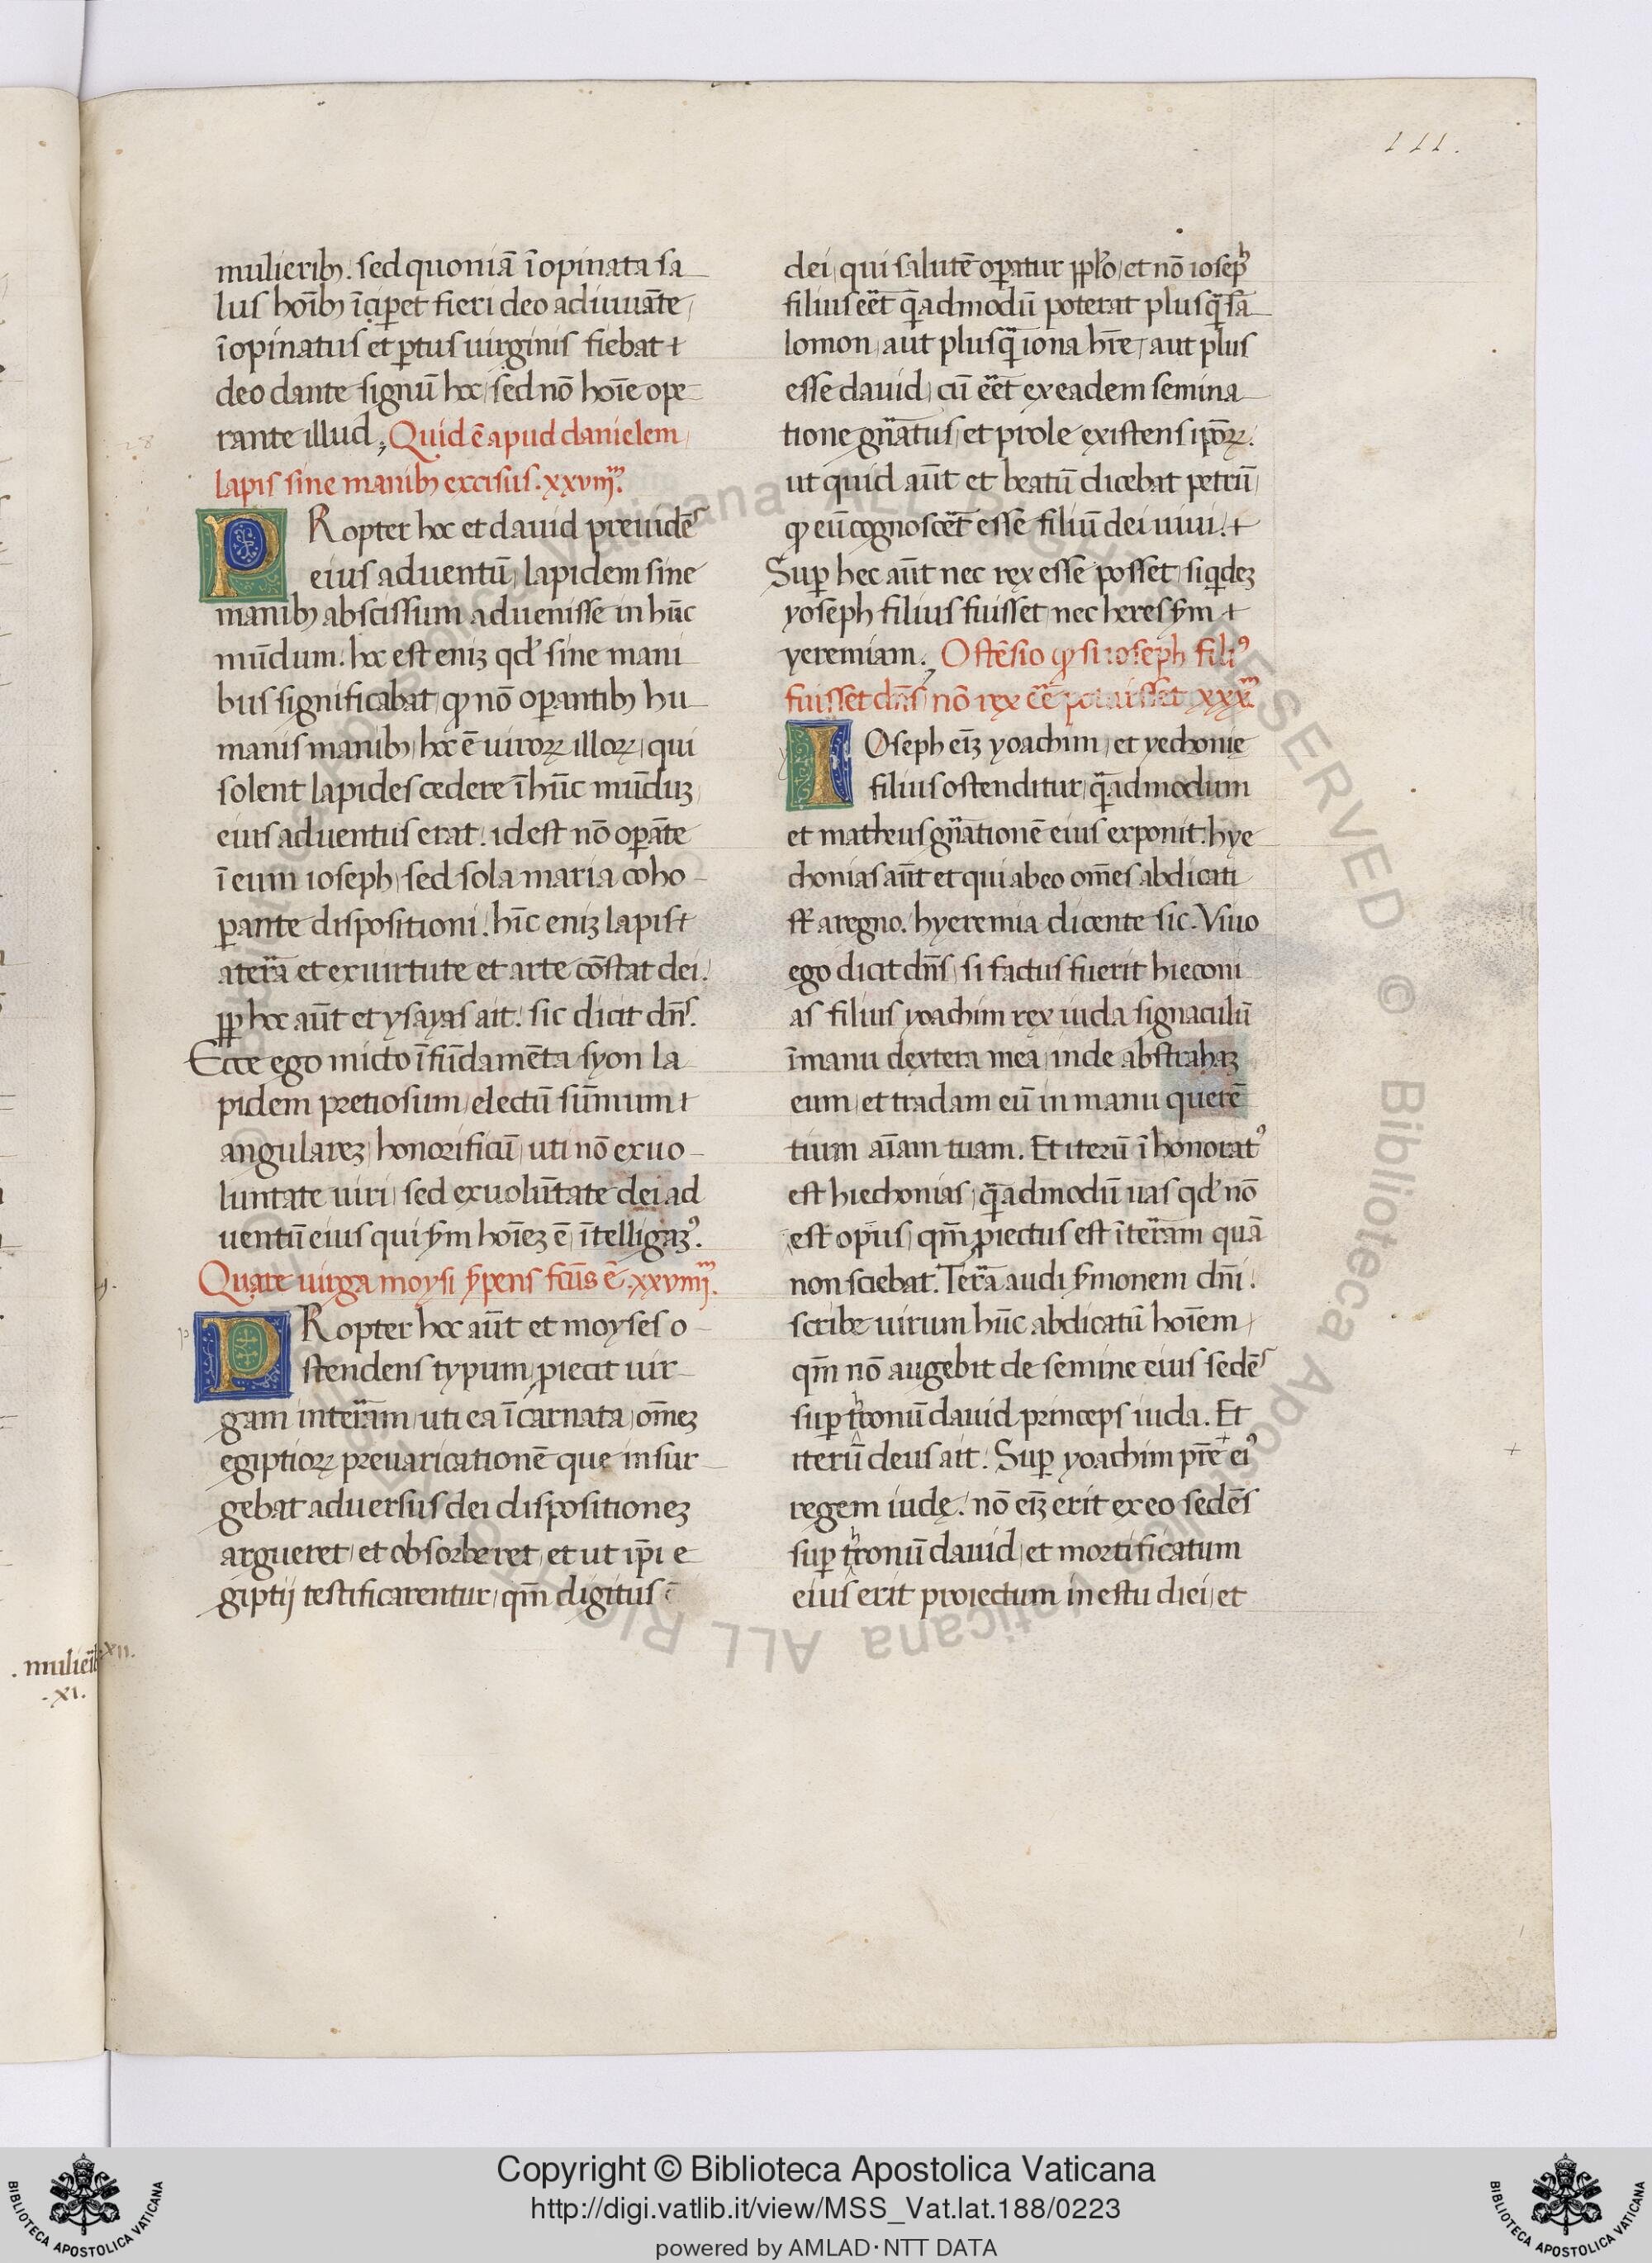 111.
mulierib; . sed quoniā īopinata sa
lus hoīb; īciꝑet fieri deo adiuuāte,
īopinatus et ꝑtus uirginis fiebat ⁊
deo dante signū hoc, sed nō hoīe ope
rante illud; Quid ē apud danielem,
lapis sine manib; excisus. xxviij.
PRopter hoc et dauid preuidēs
eius aduentū, lapidem sine
manib; abscissum aduenisse in hūc
mūdum. hoc est eniz qd' sine mani
bus significabat, ꝙ nō oꝑantib; hu
manis manib;, hoc ē uiroꝝ illoꝝ, qui
solent lapides cedere ī hūc mūduz,
eius aduentus erat. id est nō oꝑāte
ī eum ioseph, sed sola maria coho
ꝑante dispositioni. hīc eniz lapis ⁊
a terā et ex uirtute et arte cōstat dei.
ꝓp hoc aūt et ysayas ait. sic dicit dn̄s.
Ecce ego micto ī fūdamēta syon la
pidem pretiosum, electū sūmum ⁊
angularez, honorificū, uti nō ex uo
luntate uiri, sed ex uolūtate dei ad
uentū eius qui ẜm hoīez ē, ītelligaꝰ.
Quare uirga moysi ẜpens fcūs ē. xxviiij.
PRopter hoc aūt et moyses o
stendens typum, ꝓiecit uir
gam in terām, uti ea īcarnata, om̄ez
egiptioꝝ preuaricationē que insur
gebat aduersus dei dispositionez
argueret, et obsorberet, et ut ip̄i e
giptij testificarentur, qm̄ digitus ē
dei, qui salutē oꝑatur ꝓplo, et nō ioseph
filius eēt q̄admodū poterat plus q̄ sa
lomon, aut plus q̄ iona hr̄e, aut plus
esse dauid, cū eēt ex eadem semina
tione gn̄atus, et prole existens ip̄oꝝ.
ut quid aūt et beatū dicebat petrū,
ꝙ eū cognosceēt esse filiū dei uiui. ⁊
Suꝑ hec aūt nec rex esse posset, siq̄dez
yoseph filius fuisset, nec heres ẜm ⁊
yeremiam. Ostēsio ꝙ si ioseph filiꝰ
fuisset dn̄s, nō rex eē potuisset. xxx.
IOseph eīz yoachim, et yechonię
filius ostenditur, q̄admodum
et matheus gn̄ationē eius exponit. hye
chonias aūt et qui ab eo om̄es abdicati
sr̄ a regno. hyeremia dicente sic. Viuo
ego dicit dn̄s, si factus fuerit hieconi
as filius yoachim rex iuda signaculū
ī manu dextera mea, inde abstrahaz
eum, et tradam eū in manu querē
tium aīam tuam. Et iterū ī honoratꝰ
est hiechonias, q̄admodū uas qd' nō
est opus, qm̄ ꝓiectus est ī terām quā
non sciebat. Terā audi ẜmonem dn̄i.
scribe uirum hūc abdicatū hoīem,
qm̄ nō augebit de semine eius sedēs
suꝑ thronū dauid, princeps iuda. Et
iterū deus ait. Suꝑ yoachim pr̄e eiꝰ
regem iudę. nō eīz erit ex eo sedēs
suꝑ thronū dauid, et mortificatum
eius erit proiectum in estu diei, et
. XII.
.XI.
Copyright © Biblioteca Apostolica Vaticana
http://digi.vatlib.it/view/MSS_Vat.lat.188/0223
powered by AMLAD·NTT DATA
BIBLIOTECA APOSTOLICA VATICANA
BIBLIOTECA APOSTOLICA VATICANA